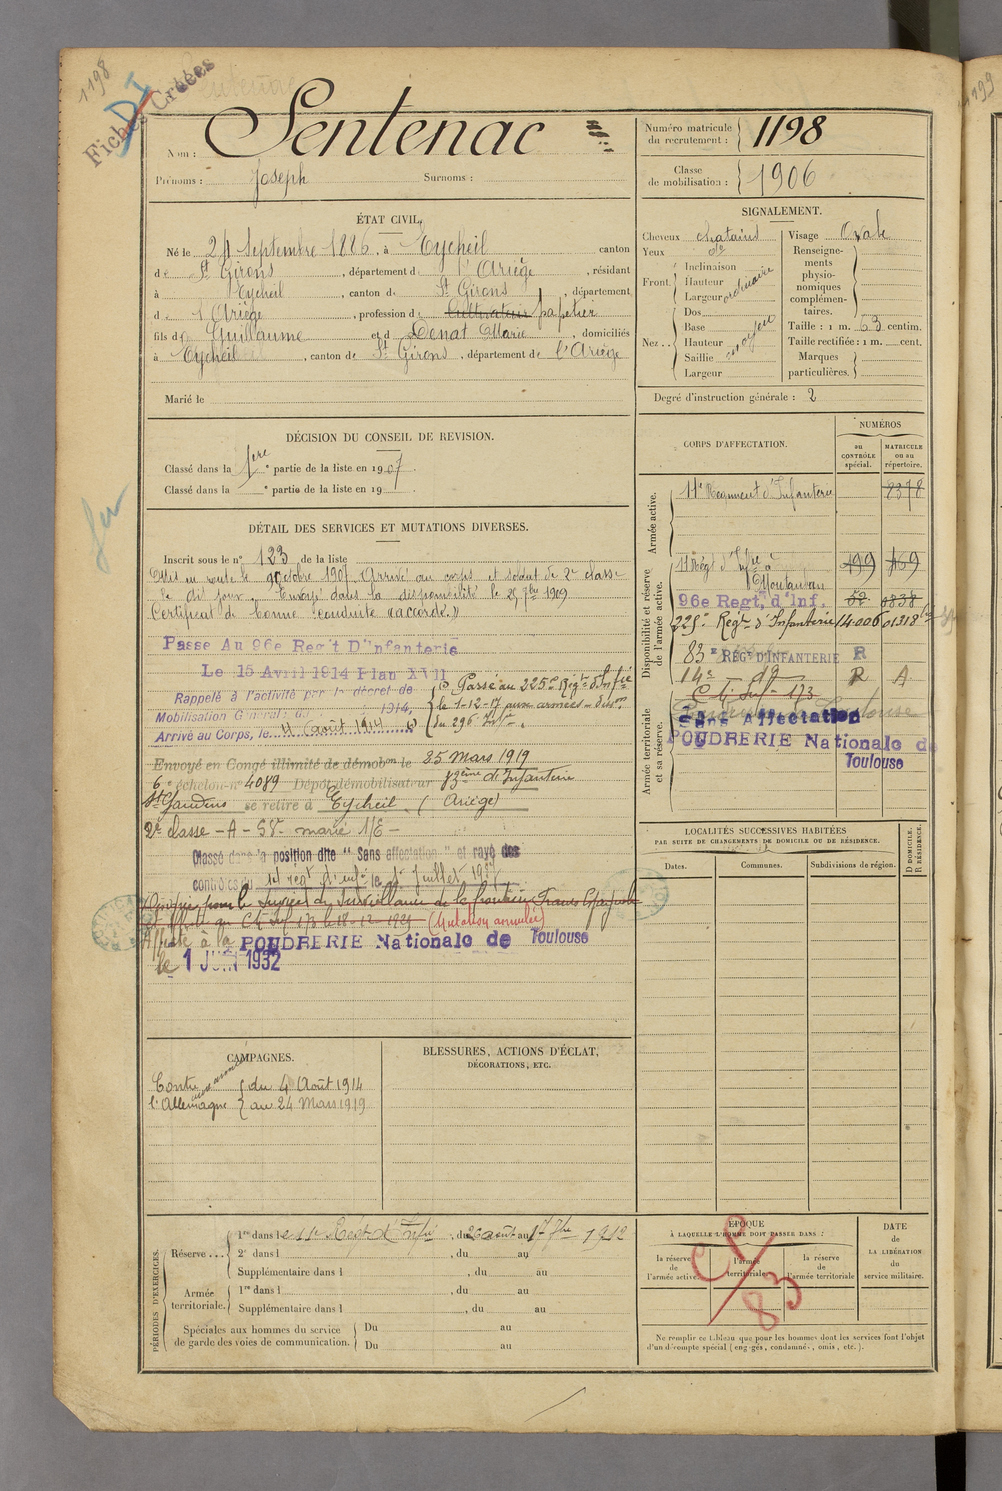 1198
Fiches Créées
Nom : Sentenac
Prénoms : Joseph Surnoms :
Numéro matricule du recrutement : 1198
Classe de mobilisation : 1906
ÉTAT CIVIL.
Né le 24 Septembre 1886, à Eycheil canton
de St Girons, département de l'Ariège, résidant
à Eycheil, canton de St Girons, département
de l'Ariège, profession de Cultivateur papetier
fils de Guillaume et de Denat Marie, domiciliés
à Eycheil, canton de St Girons, département de l'Ariège
Marié le
SIGNALEMENT.
Cheveux chatains Visage Ovale
Yeux
Front. Inclinaison
Hauteur
Largeur ordinaire
Nez.. Dos
Base
Hauteur
Saillie moyen
Largeur
Renseignements physionomiques complémentaires.
Taille : 1 m. 63 centim.
Taille rectifiée : 1 m. cent.
Marques particulières.
Degré d'instruction générale : 2
DÉCISION DU CONSEIL DE REVISION.
Classé dans la 1ere partie de la liste en 1907
Classé dans la e partie de la liste en 19
DÉTAIL DES SERVICES ET MUTATIONS DIVERSES.
Inscrit sous le n° 123 de la liste
Mis en route le octobre 1907 Arrivé au corps et soldat de 2e classe
le dit jour. Envoyé dans la disponibilité le 25 7bre 1909
Certificat de bonne conduite "accordé"
Passe Au 96e Reg't D'Infanterie
Le 15 Avril 1914 Plan XVII
Rappelé à l'activité par le décret de
Mobilisation Générale du 1914,
Arrivé au Corps, le 4 août 1914
Passé au 225e Régt d'Infie
le 1-12-17 aux armées
du 296 Infie.
Envoyé en Congé illimité de démobon le 25 Mars 1919
6e échelon n° 4089 Dépôt démobilisateur 83ème d'Infanterie
St Gaudens se retire à Eycheil (Ariège)
2e classe - A - SV marié 1/E -
Classé dans la position dite "Sans affectation" et rayé des
contrôles du 14 régt d'infie le 1er Juillet 1927
pour le Service de Surveillance de la frontière Franco Espagnole
Cti Inf 173 le 18-12-1929 (Mutation annulée)
Affecté à la POUDRERIE Nationale de Toulouse
le 1 JUIN 1932
CORPS D'AFFECTATION.
NUMÉROS
au CONTRÔLE spécial.
MATRICULE ou au répertoire.
Armée active.
11e Régiment d'Infanterie 8378
Disponibilité et réserve de l'armée active.
11 Régt d'Infie à Montauban 499 469
96e Regt, d'Inf. 52 0838
225e Regt d'Infanterie 14.006 01318
83e REGt D'INFANTERIE R
14e do R A
Armée territoriale et sa réserve.
Cti Inf - 173
Sans Affectation
POUDRERIE Nationale de
Toulouse
LOCALITÉS SUCCESSIVES HABITÉES
PAR SUITE DE CHANGEMENTS DE DOMICILE OU DE RÉSIDENCE.
Dates. Communes. Subdivisions de région.
D DOMICILE. R RÉSIDENCE.
CAMPAGNES.
Contre l'Allemagne aux armées
du 4 Août 1914
au 24 Mars 1919
BLESSURES, ACTIONS D'ÉCLAT,
DÉCORATIONS, ETC.
PÉRIODES D'EXERCICES.
Réserve ... 1re dans le 11e Régt d'Infie, du 26 août au 17 7bre 1912
2e dans l , du au
Supplémentaire dans l , du au
Armée territoriale. 1re dans l , du au
Supplémentaire dans l , du au
Spéciales aux hommes du service de garde des voies de communication. Du au
Du au
ÉPOQUE
À LAQUELLE L'HOMME DOIT PASSER DANS :
la réserve de l'armée active
l'armée territoriale
la réserve de l'armée territoriale
DATE DE LA LIBÉRATION du service militaire.
CP
83
Ne remplir ce tableau que pour les hommes dont les services font l'objet
d'un décompte spécial (engagés, condamnés, omis, etc.).
1199